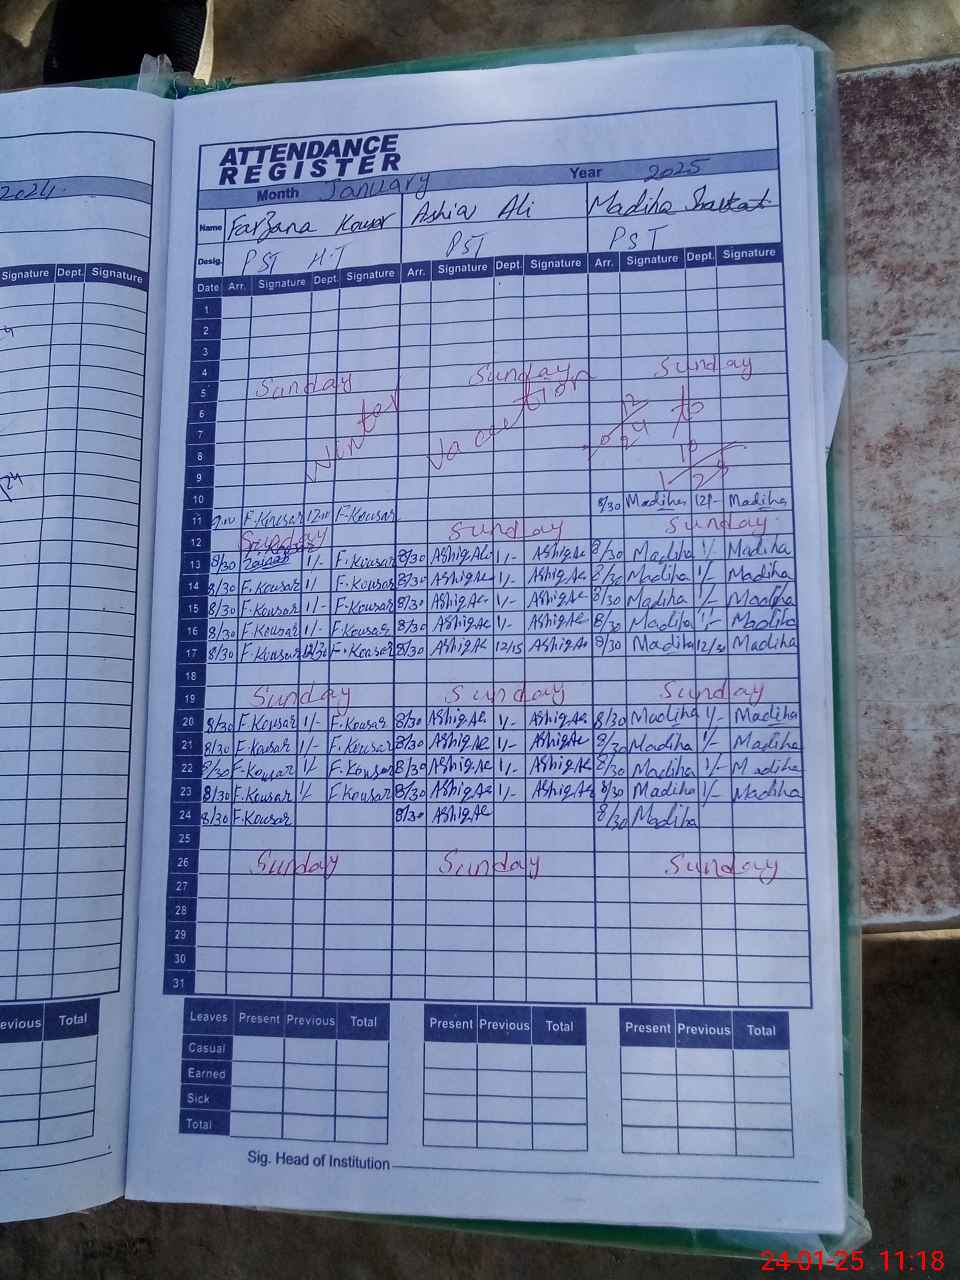 2024
Signature Dept. Signature
evious Total
ATTENDANCE
REGISTER
Month January Year 2025
Name Farzana Kousar Ashia Ali Madiha Shaukat
Desig. PST H.T PST PST
Date Arr. Signature Dept. Signature Arr. Signature Dept. Signature Arr. Signature Dept. Signature
1
2
3
4
5 Sunday Sunday Sunday
6
7
8 Winter Vacation
9
10 8/30 Madiha 12/- Madiha
11 F.Kousar F-Kousar
12 Sunday Sunday Sunday
13 8/30 1/- F.Kousar 8/30 Ashig.Ae 1/- Ashig.Ae 8/30 Madiha 1/- Madiha
14 8/30 F.Kousar 1/ F.Kousar 8/30 Ashig.Ae 1/- Ashig.Ae 8/30 Madiha 1/- Madiha
15 8/30 F.Kousar 1/- F-Kousar 8/30 Ashig.Ae 1/- Ashig.Ae 8/30 Madiha 1/- Madiha
16 8/30 F.Kousar 1/- F.Kousar 8/30 Ashig.Ae 1/- Ashig.Ae 8/30 Madiha 1/- Madiha
17 8/30 F.Kousar 12/30 F.Kousar 8/30 Ashig.Ae 12/15 Ashig.Ae 8/30 Madiha 12/30 Madiha
18
19 Sunday Sunday Sunday
20 8/30 F.Kousar 1/- F.Kousar 8/30 Ashig.Ae 1/- Ashig.Ae 8/30 Madiha 1/- Madiha
21 8/30 F.Kousar 1/- F.Kousar 8/30 Ashig.Ae 1/- Ashig.Ae 8/30 Madiha 1/- Madiha
22 8/30 F-Kousar 1/- F.Kousar 8/30 Ashig.Ae 1/- Ashig.Ae 8/30 Madiha 1/- Madiha
23 8/30 F.Kousar 1/- F.Kousar 8/30 Ashig.Ae 1/- Ashig.Ae 8/30 Madiha 1/- Madiha
24 8/30 F.Kousar 8/30 Ashig.Ae 8/30 Madiha
25
26 Sunday Sunday Sunday
27
28
29
30
31
Leaves Present Previous Total Present Previous Total Present Previous Total
Casual
Earned
Sick
Total
Sig. Head of Institution
24-01-25 11:18